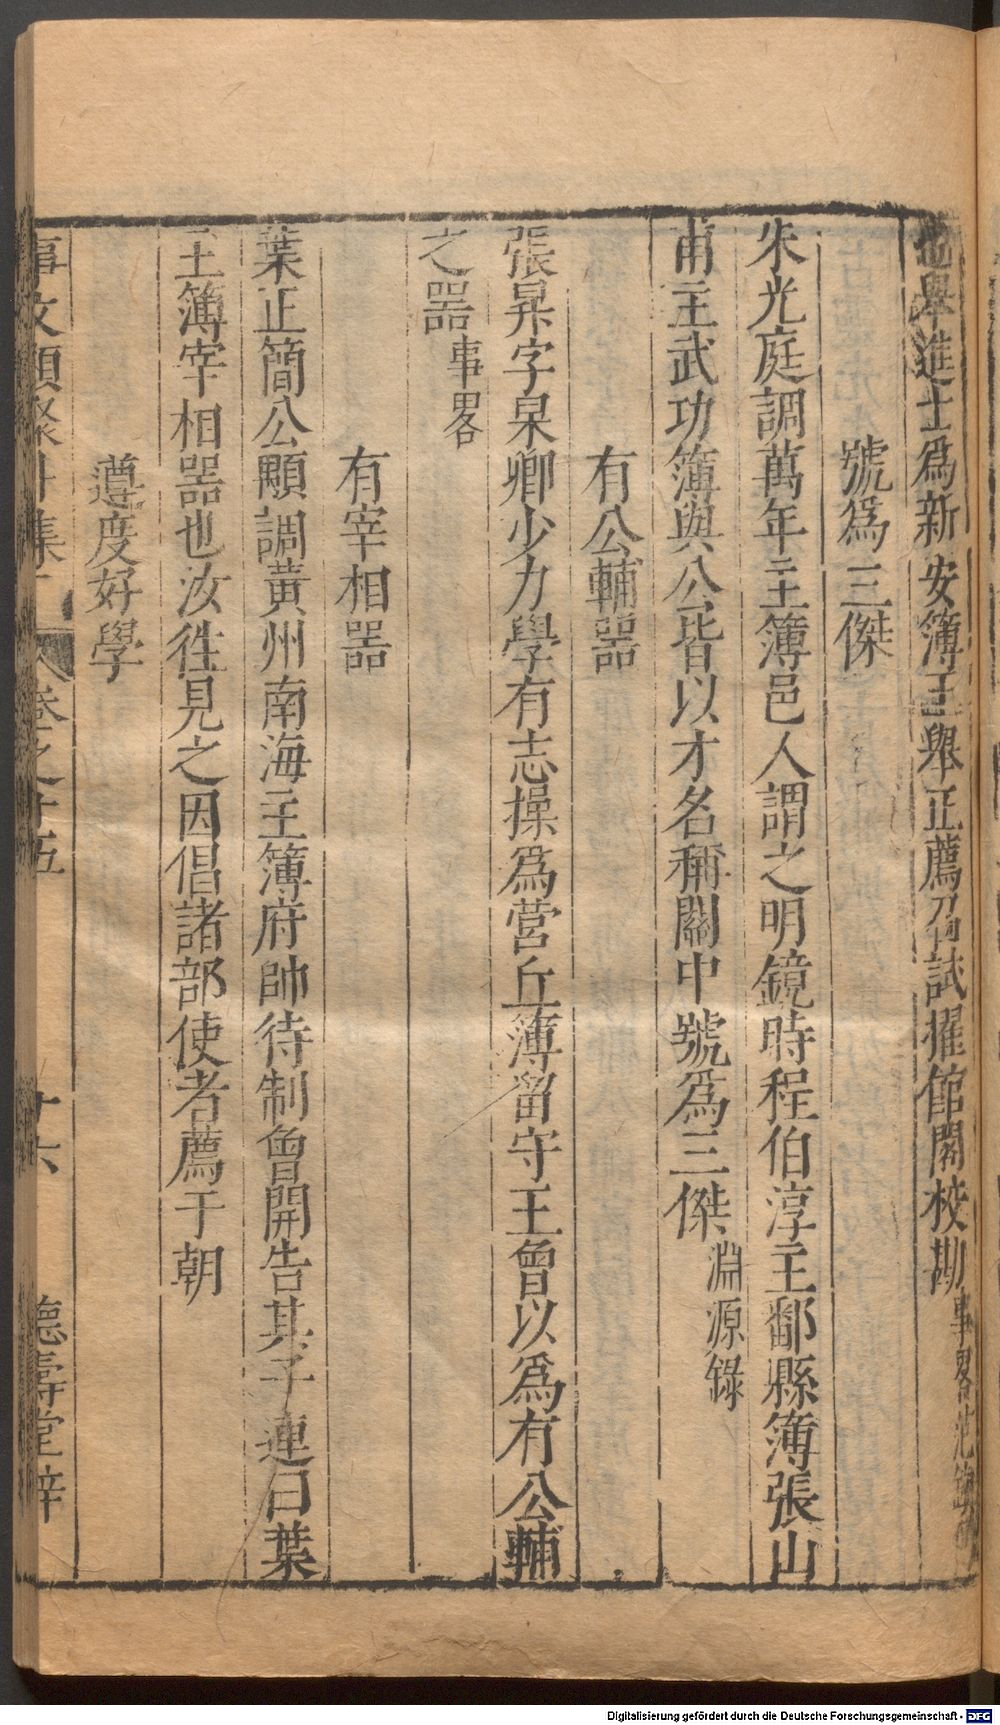 也舉進士爲新安簿王舉正薦召試擢館閣校勘事畧
號爲三傑
朱光庭調萬年主簿邑人謂之明鏡時程伯淳主鄠縣簿張山
甫主武功簿與公皆以才名稱關中號爲三傑淵源錄
有公輔器
張昪字杲卿少力學有志操爲營丘簿留守王曾以爲有公輔
之器事畧
有宰相器
葉正簡公顒調黃州南海主簿府帥待制曾開告其子連曰葉
主簿宰相器也汝徃見之因倡諸部使者薦于朝
遵度好學
事文類聚外集 卷之十五 十六 德壽堂梓
Digitalisierung gefördert durch die Deutsche Forschungsgemeinschaft - DFG